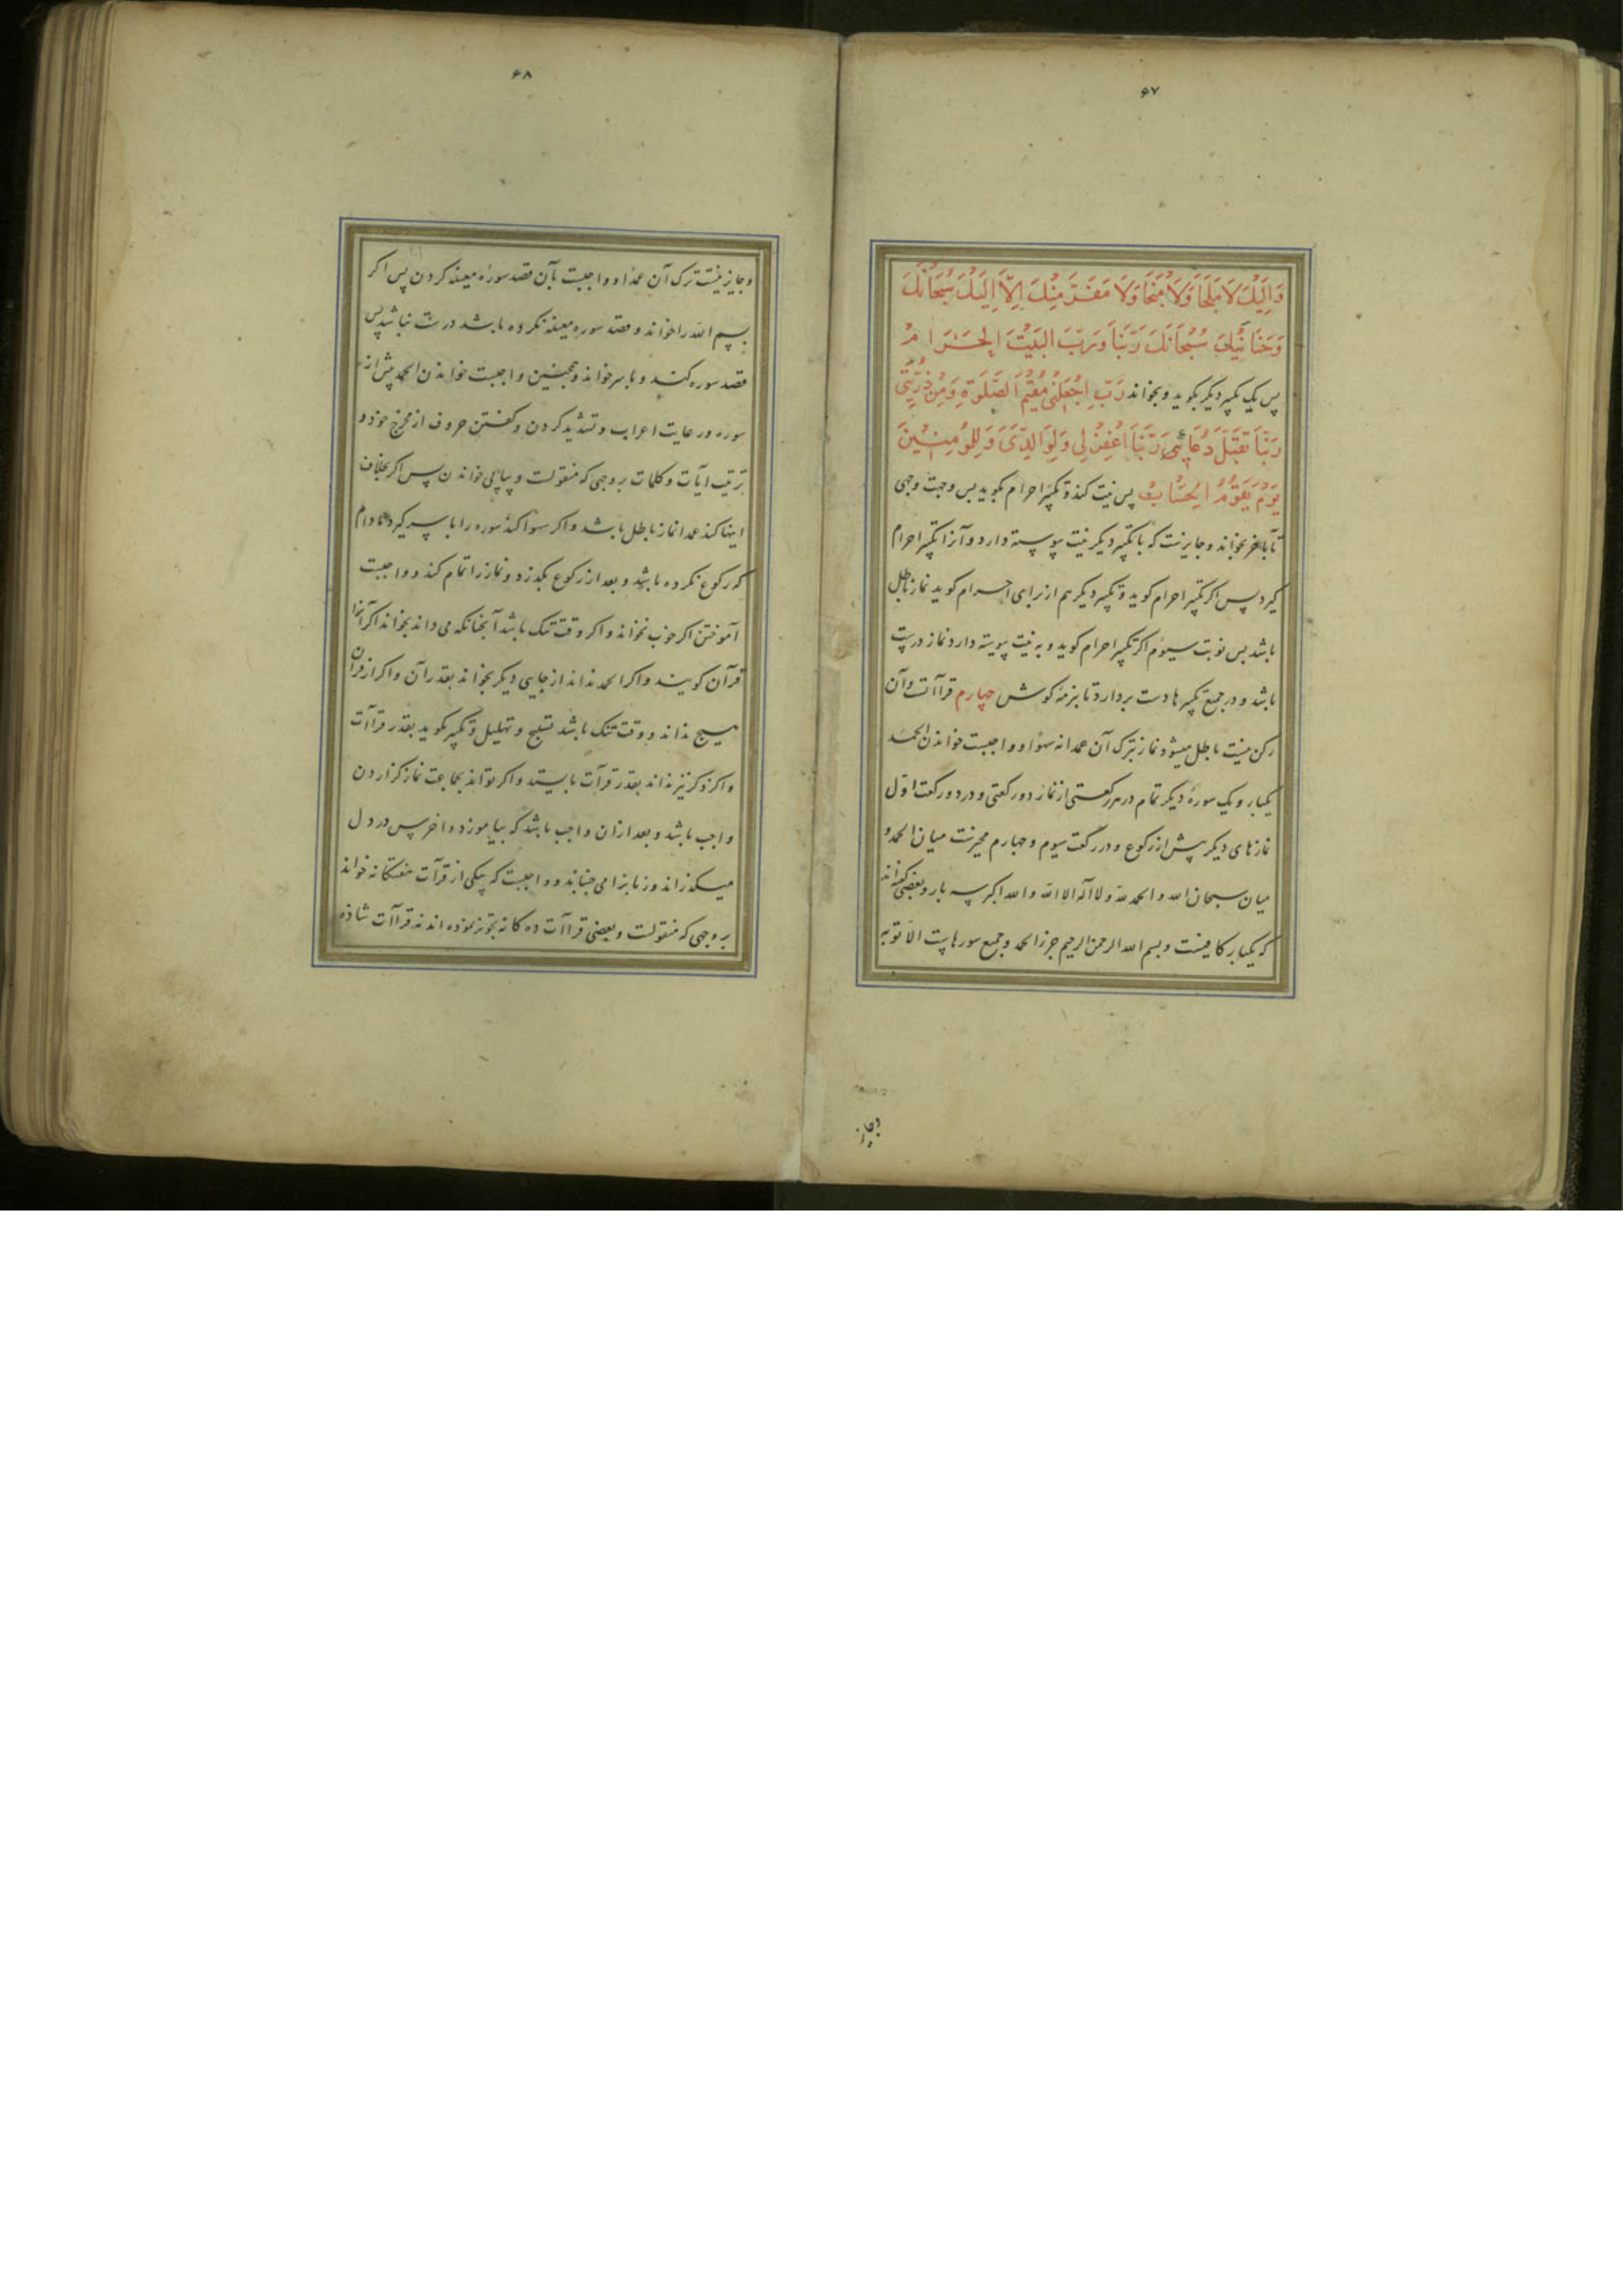 ۶۷
وَاِلَیْكَ لَا مَلْجَأَ وَلَا مَنْجَا وَلَا مَفَرَّ مِنْكَ اِلَّا اِلَیْكَ سُبْحَانَكَ
وَحَنَانَیْكَ سُبْحَانَكَ رَبَّنَا وَرَبَّ الْبَیْتَ الْحَرَامْ
پس یک تکپیر دیکر بکوید و بخواند رَبِّ اِجْعَلْنی مُقیمَ الصَّلٰوةِ وَمِنْ ذُرِّیَّتی
رَبَّنَا تَقَبَّلْ دُعَائی رَبَّنَا اغْفِرْ لی وَلِوَالِدَیَّ وَلِلْمُؤمِنینَ
یَوْمَ یَقُوْمُ الْحِسَابُ پس نیت کند و تکپیر احرام بکوید پس وجهت وجهی
تا بآخر بخواند و جایزنست که با تکپیر دیکر نیت پیوسته دارد و آنرا تکپیر احرام
کیرد پس اکر تکپیر احرام کوید و تکپیر دیکر هم از برای احرام کوید نماز باطل
باشد پس نوبت سیوم اکر تکپیر احرام کوید و به نیت پیوسته دارد نماز درست
باشد و در جمیع تکپیرها دست بردارد تا بنرمۀ کوش چهارم قراآتست و آن
رکن نیست باطل میشود نماز بترک آن عمدا نه سهوا و واجبست خواندن الحمد
یکبار و یک سورۀ دیکر تمام در هر رکعتی از نماز دو رکعتی و در دو رکعت اوّل
نمازهای دیکر پیش از رکوع و در رکعت سیوم و چهارم مخیرست میان الحمد و
میان سبحان الله و الحمد لله و لا اله الا الله و الله اکبر سه بار و بعضی کفته‌اند
که یکبار کافیست و بسم الله الرحمن الرحیم جزو الحمد و جمیع سورهاست الا توبه
وجایز
۶۸
و جایز نیست ترک آن عمدا و واجبست بآن قصد سورۀ معینه کردن پس اکر
بسم الله را خواند و قصد سورۀ معینه نکرده باشد درست نباشد پس
قصد سوره کند و با سر خواند و همچنین واجبست خواندن الحمد پیش از
سوره و رعایت اعراب و تشدید کردن و کفتن حروف از مخرج خود و
ترتیب آیات و کلمات بر وجهی که منقولست و پیاپی خواندن پس اکر بخلاف
اینها کند عمدا نماز باطل باشد و اکر سهوا کند سوره را با سر کیرد مادام
که رکوع نکرده باشد و بعد از رکوع بکذرد و نماز را تمام کند و واجبست
آموختن اکر خوب نخواند و اکر وقت تنک باشد آنچنانکه می داند بخواند اکر آنرا
قرآن کویند و اکر الحمد نداند از جایی دیکر بخواند بقدر آن و اکر از قرآن
هیچ نداند و وقت تنک باشد تسبیح و تهلیل و تکپیر بکوید بقدر قراآت
و اکر ذکر نیز نداند بقدر قرآت بایستد و اکر تواند بجماعت نماز کزاردن
واجب باشد و بعد از ان واجب باشد که بیاموزد و اخرس در دل
میکذراند و زبانرا می جنباند و واجبست که بیکی از قرآت هفتکانه خواند
بر وجهی که منقولست و بعضی قراآت ده کانه تجویز نموده‌اند نه قراآت شاذه